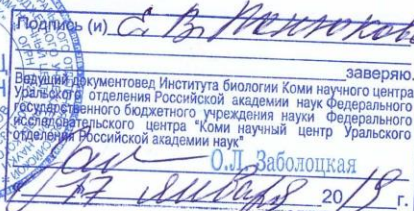 Подпись (и) Е. В.
заверяю.
Ведущий документовед Института биологии Коми научного центра
Уральского отделения Российской академии наук Федерального
государственного бюджетного учреждения науки Федерального
исследовательского центра "Коми научный центр Уральского
отделения Российской академии наук"
О.Л. Заболоцкая
17 января 2019 г.